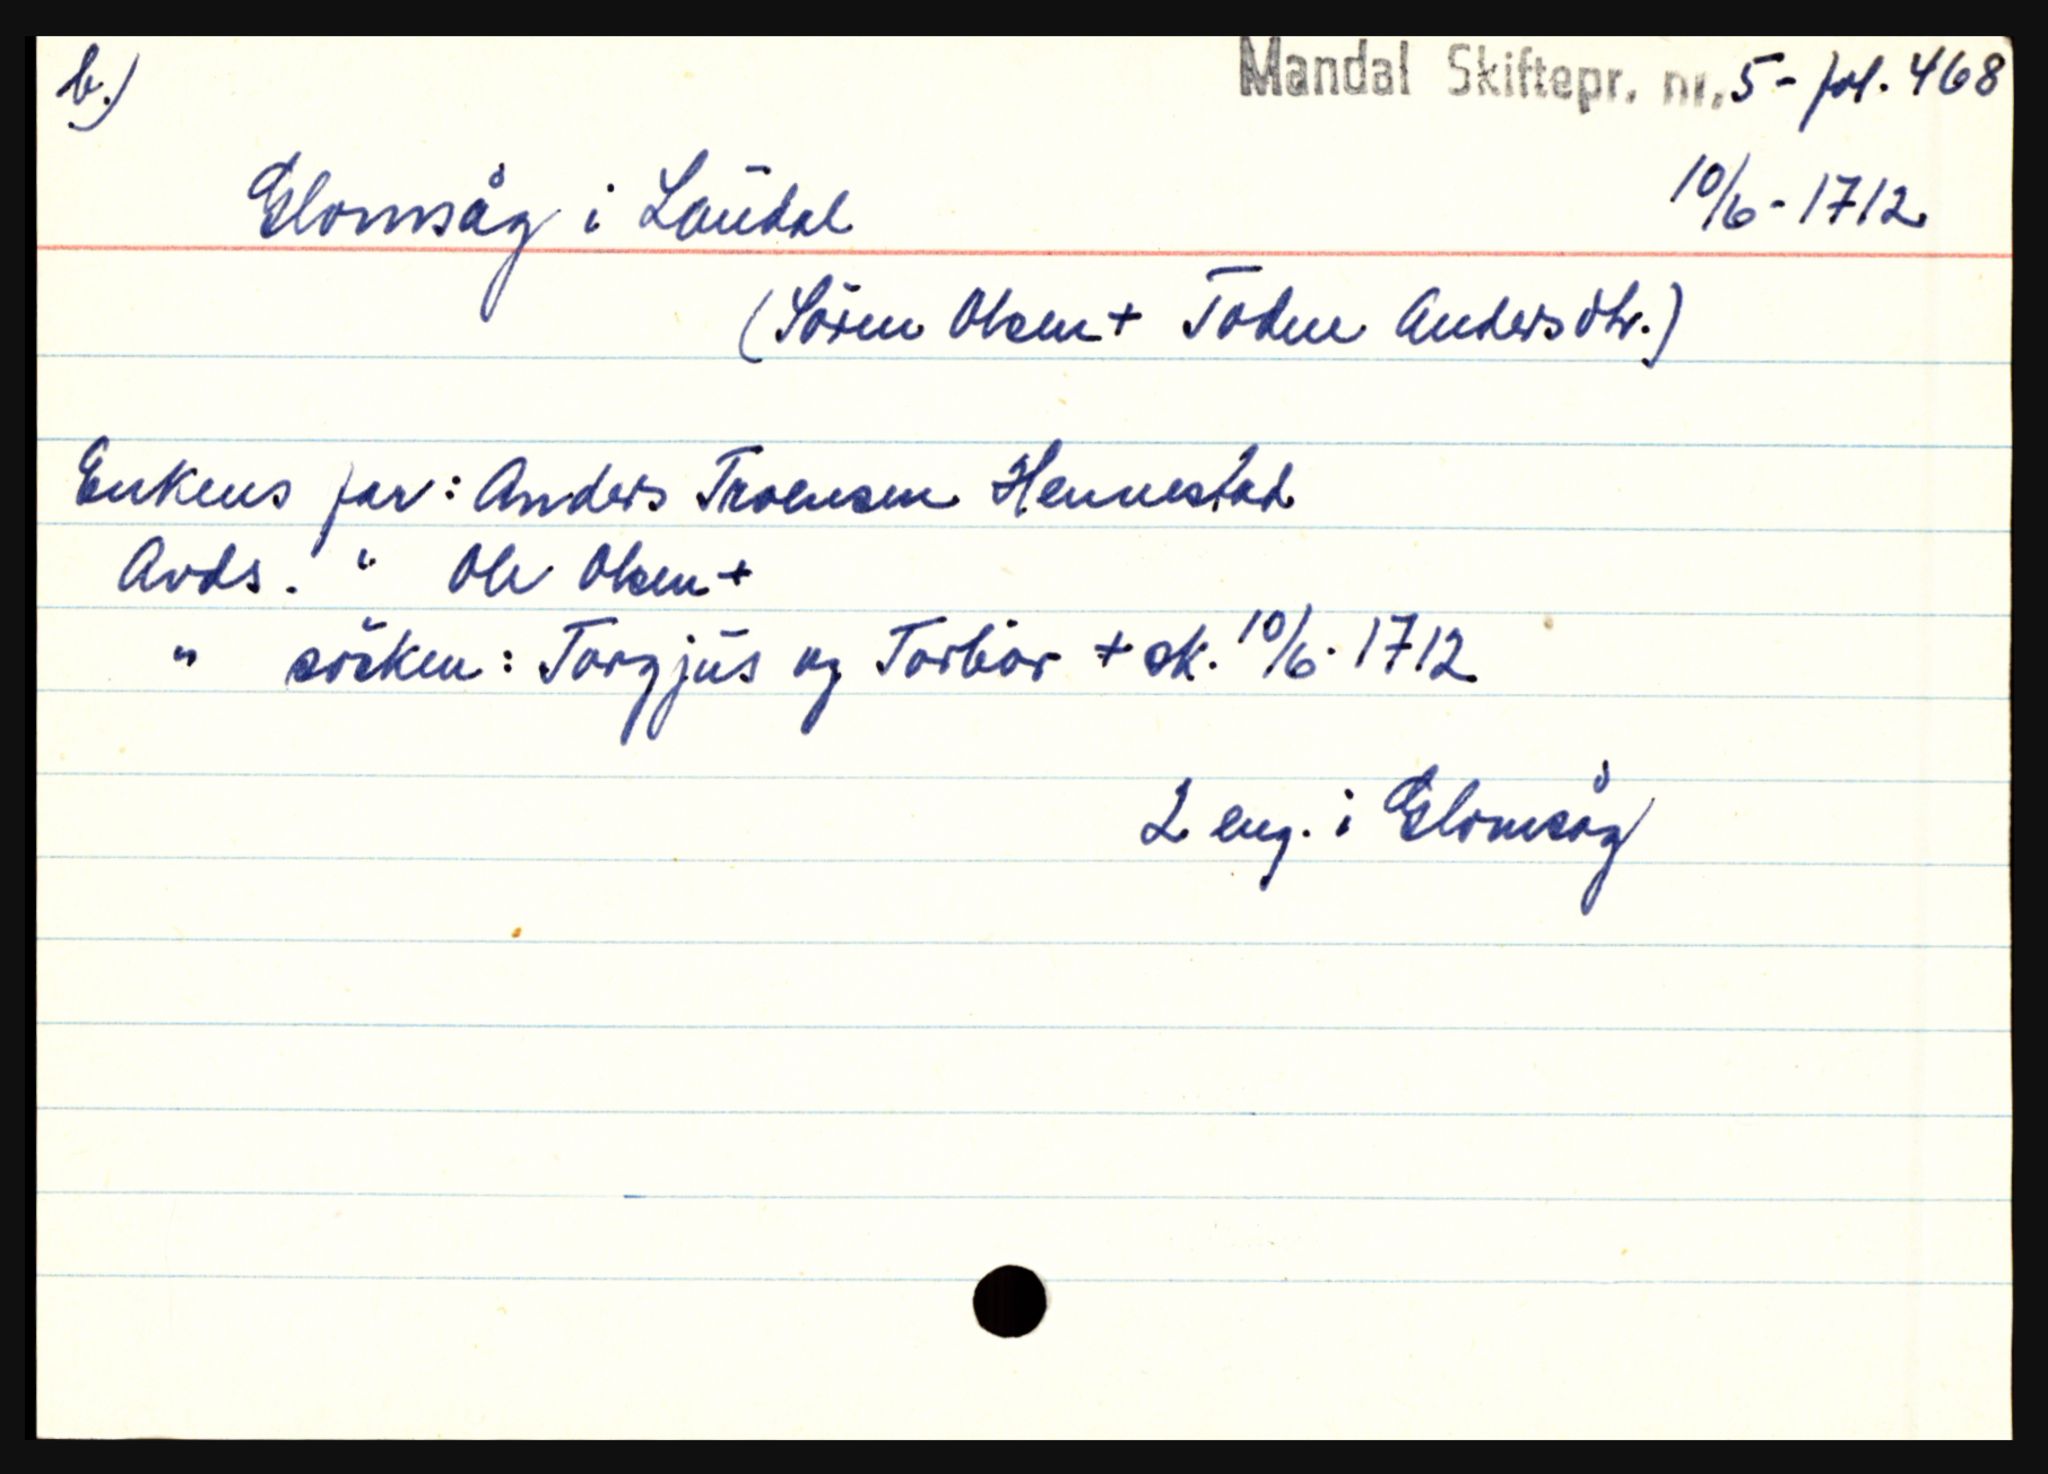 b.)
Mandal Skiftepr. nr. 5 - fol. 468
Glomsåg i Laudal
10/6 - 1712
(Sören Olsen + Todne Andersdtr.)
Enkens far: Anders Troensen Hennestad
Avds. " Ole Olsen +
" sösken: Torgjus og Torbör + sk. 10/6. 1712
2 eng. i Glomsåg